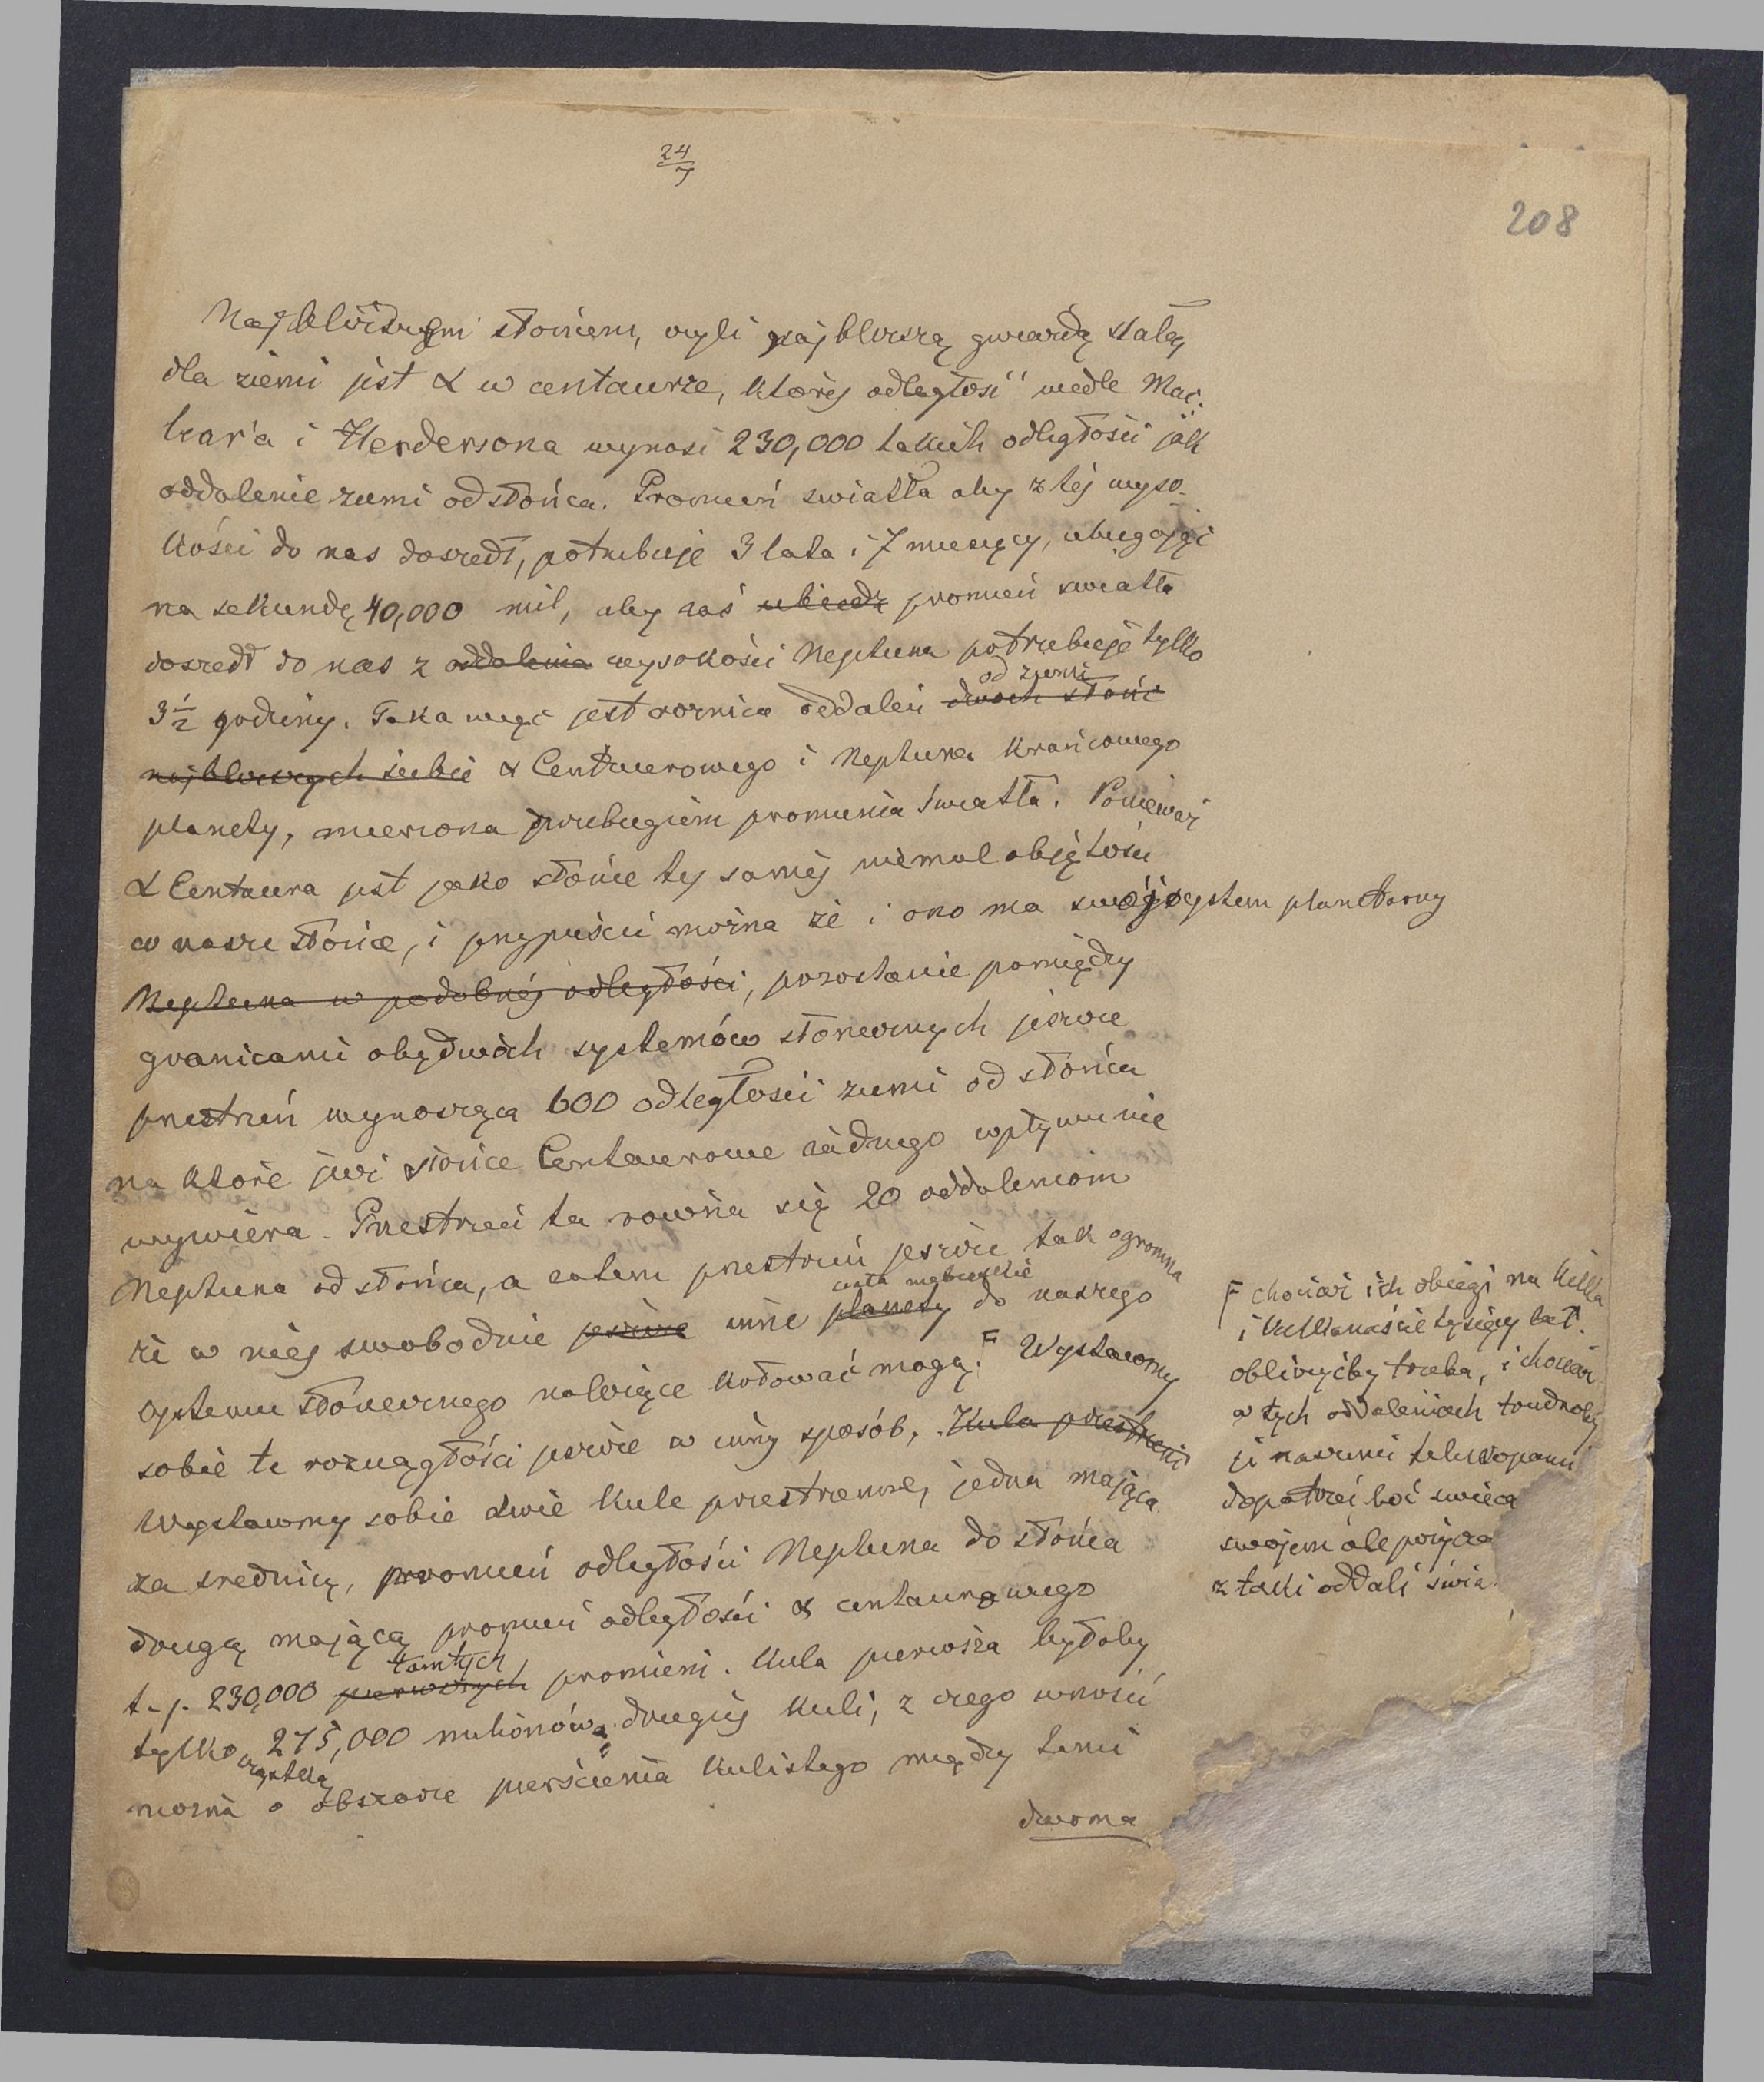 24/7
208
Najbliższym słońcem, czyli najbliższą gwiazdą stałą
dla ziemi jest α w centaurze, której odległość wedle Mac-
lear'a i Hendersona wynosi 230,000 takich odległości jak
oddalenie ziemi od słońca. Promień swiatła aby z tej wyso-
kości do nas doszedł, potrzebuje 3 lata i 7 miesięcy, ubiegając
na sekundę 40,000 mil, aby zaś ubiedz promień swiatła
doszedł do nas z oddalenia wysokości Neptuna potrzebuje tylko
3½ godziny. Taka więc jest roznica oddaleń dwóch słońc
od ziemi
najbliższych siebie α Centaurowego i Neptuna krańcowego
planety, mierzona przebiegiem promienia światła. Ponieważ
α Centaura jest jako słońce tej samej niemal objętości
co nasze słońce, i przypuścić można że i ono ma swój system planetarny
Neptuna w podobnéj odległości, pozostanie pomiędzy
granicami obydwóch systemów słonecznych jeszcze
przestrzeń wynosząca 600 odległości ziemi od słońca
na które już słońce Centaurowe żadnego wpływu nie
wywiera. Przestrzeń ta równa się 20 oddaleniom
Neptuna od słońca, a zatem przestrzeń jeszcze tak ogromna
że w niej swobodnie jeszcze inne planety do naszego
ciała niebieskie
systemu słonecznego należące kołować mogą. F Wystawmy
sobie te rozciągłości jeszcze w inny sposób, Kula przestrzeni
Wystawmy sobie dwie kule przestrzenne, jedna mająca
za srednicę, promień odległości Neptuna do słońca
drugą mającą promień odległości α centaurowego
t. j. 230,000 pierwszych promieni. Kula pierwsza byłaby
tamtych
tylko 275,000 milionową drugiej kuli, z czego wnosić
cząstką
można o obszarze pierścienia kulistego między temi
dwoma
F chociaż ich obiegi na kilka
i kilkanaście tysięcy lat
obliczyćby trzeba, i chociaż
w tych oddaleniach trudnoby
je naszemi teleskopami
dopatrzeć boć świecą
swojem ale pożycza
z taki oddali świa